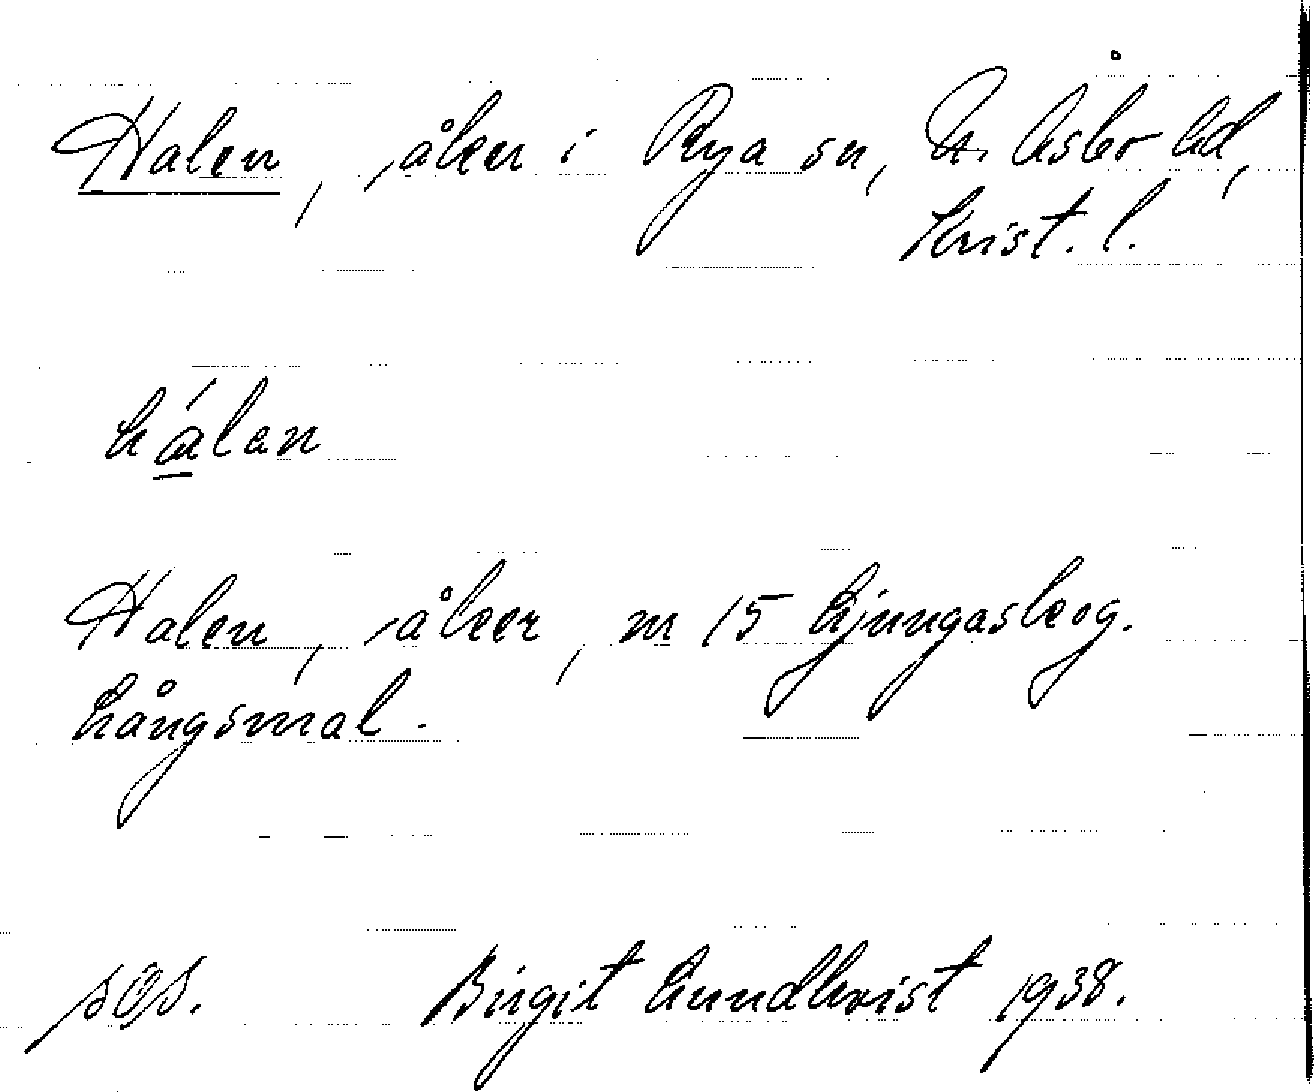 Halen, åker i Rya sn, N. Åsbo hd,
Krist. l.
hálan
Halen, åker, m 15 Ljungaskog.
Långsmal.
Birgit Lundkvist 1938.